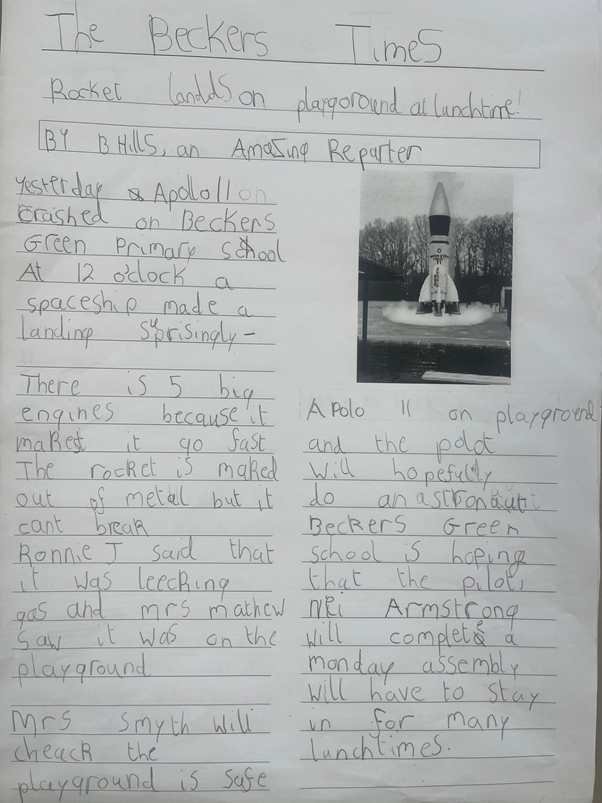 The Beckers Times
Rocket landds on playgoround at lunchtime!
BY B Hills, an Amazing Reporter
Yesterday Apollo 11 on
Crashed on Beckers
Green Primary school
At 12 o'clock a
spaceship made a
landing sprisingly-
There is 5 big
engines because it
makest it go fast
The rocket is maked
out of metal but it
cant break
Ronnie J said that
it was leecking
gas and mrs mathew
saw it was on the
playground
Mrs Smyth will
cheack the
playground is safe
Apolo 11 on playground
and the polot
will hopefully
do an astronauti
Beckers Green
school is hoping
that the pilot,
Nei Armstrong
will complete a
monday assembly
will have to stay
in for many
lunchtimes.